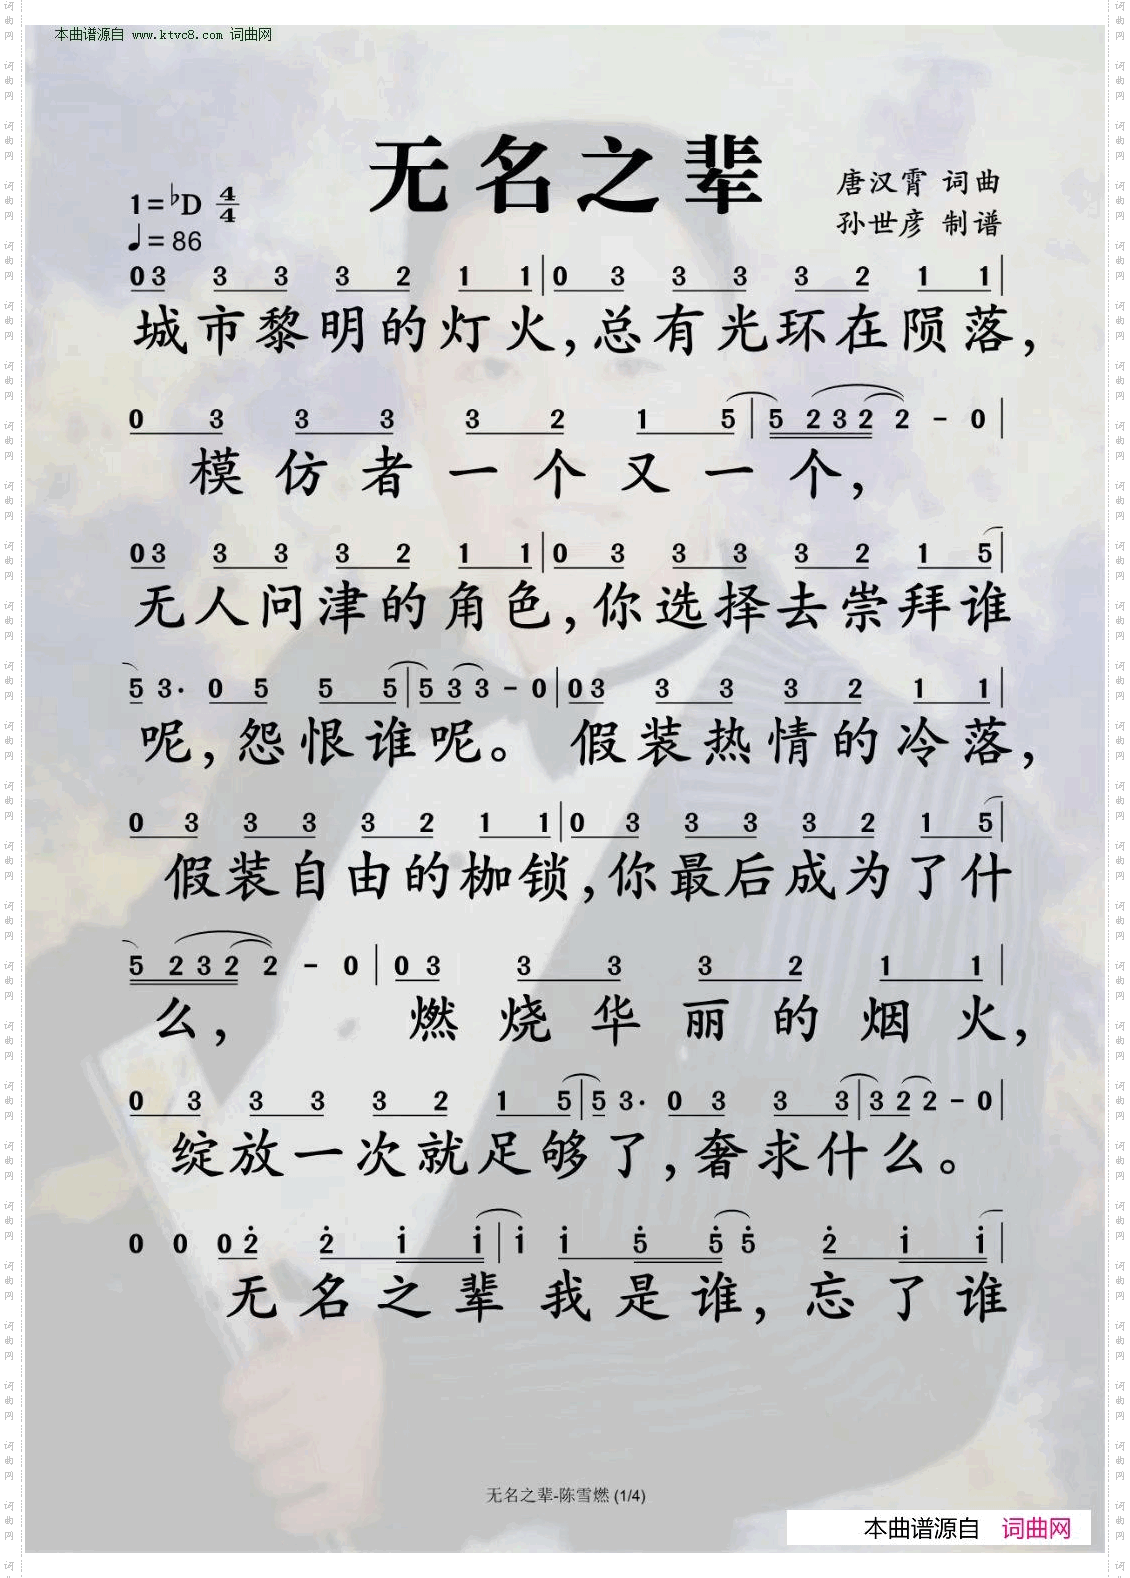 本曲谱源自 www.ktvc8.com 词曲网
无名之辈
唐汉霄 词曲
孙世彦 制谱
1=♭D 4/4
♩= 86
03 3 3 3 2 1 1 | 0 3 3 3 3 2 1 1 |
城市黎明的灯火,总有光环在陨落,
0 3 3 3 3 2 1 5 | 5 2 3 2 2 - 0 |
模仿者一个又一个,
03 3 3 3 2 1 1 | 0 3 3 3 3 2 1 5 |
无人问津的角色,你选择去崇拜谁
5 3· 0 5 5 5 | 5 3 3 - 0 | 03 3 3 3 2 1 1 |
呢,怨恨谁呢。 假装热情的冷落,
0 3 3 3 3 2 1 1 | 0 3 3 3 3 2 1 5 |
假装自由的枷锁,你最后成为了什
5 2 3 2 2 - 0 | 0 3 3 3 3 2 1 1 |
么, 燃烧华丽的烟火,
0 3 3 3 3 2 1 5 | 5 3· 0 3 3 3 | 3 2 2 - 0 |
绽放一次就足够了,奢求什么。
0 0 0 2̇ 2̇ 1̇ 1̇ | 1̇ 1̇ 5̇ 5̇ 5̇ 2̇ 1̇ 1̇ |
无名之辈 我是谁, 忘了谁
无名之辈-陈雪燃 (1/4)
本曲谱源自 词曲网